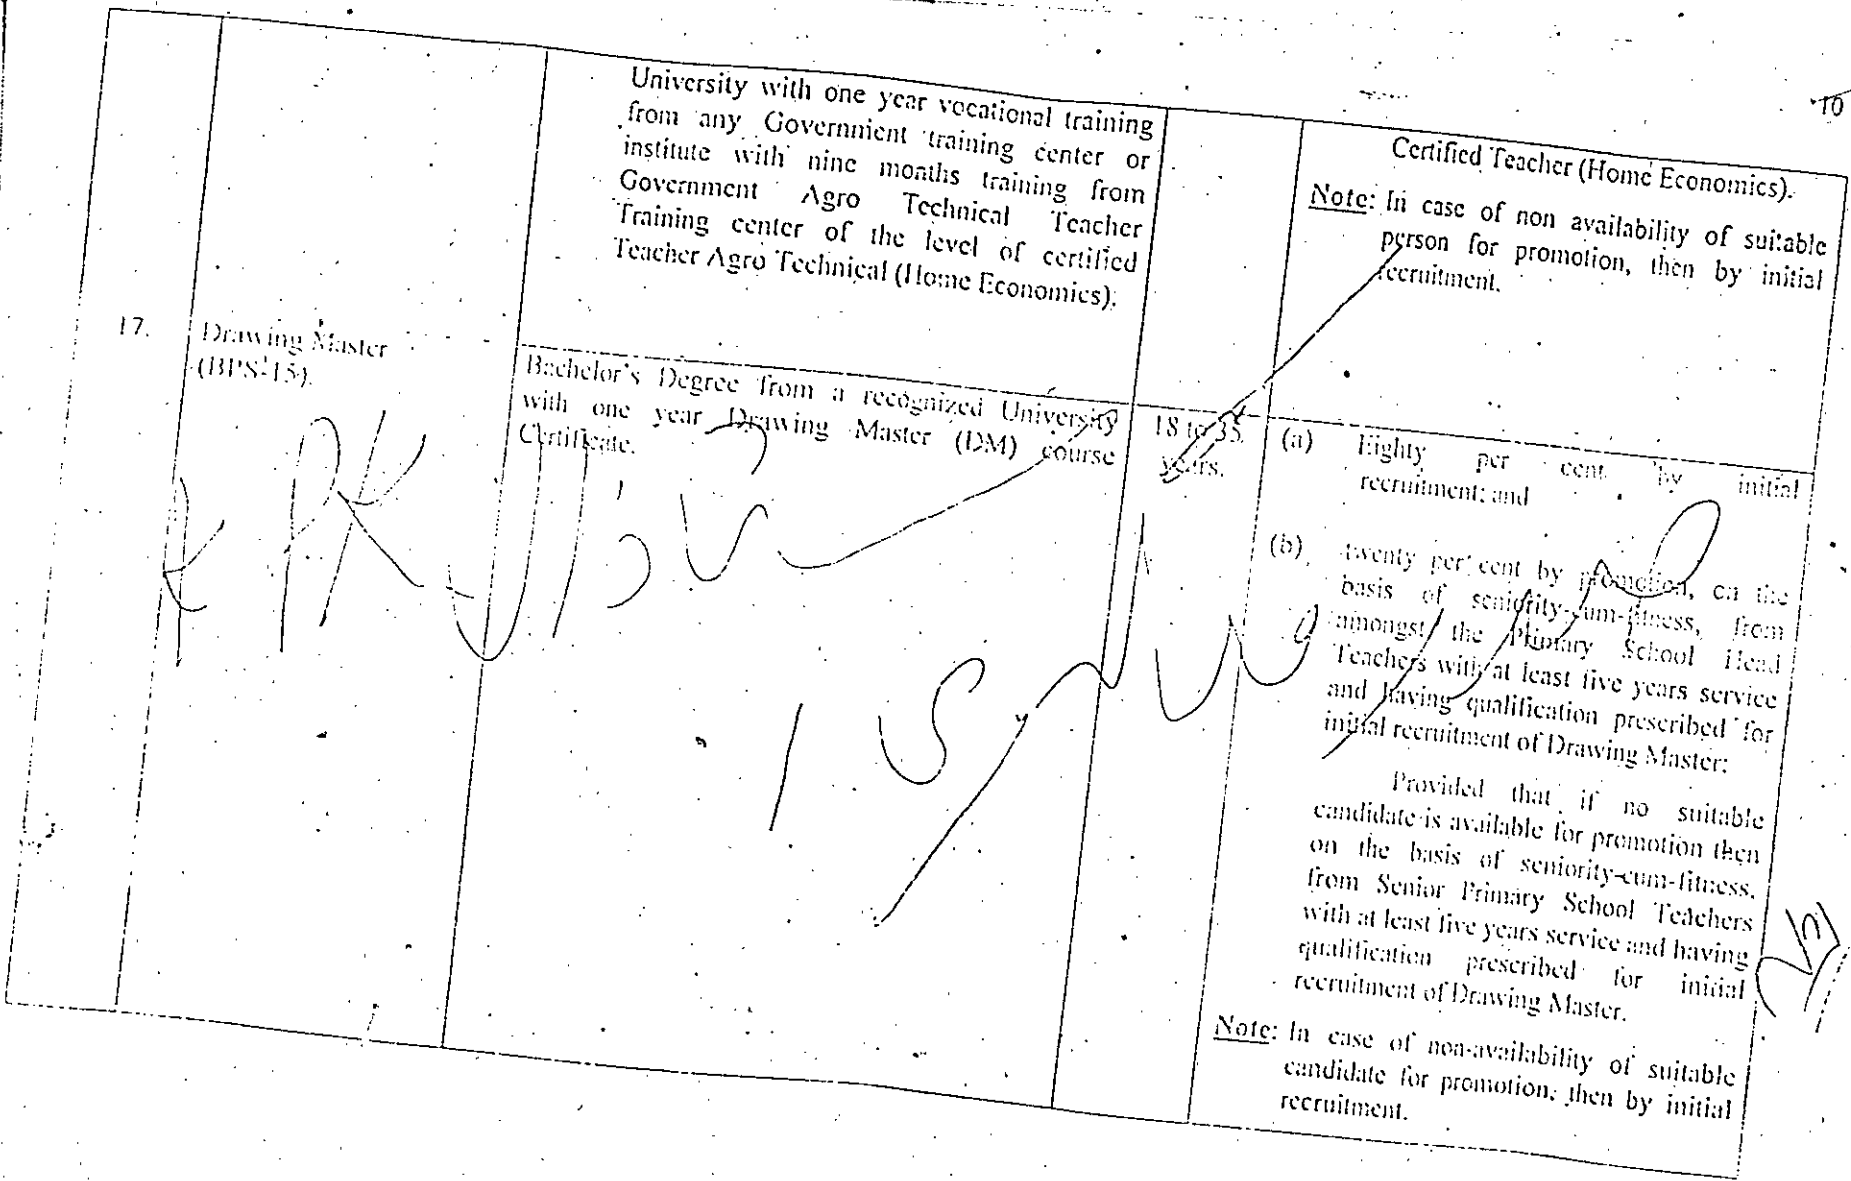 10
University with one year vocational training
from any Government training center or
institute with nine months training from
Government Agro Technical Teacher
Training center of the level of certified
Teacher Agro Technical (Home Economics).
Certified Teacher (Home Economics).
Note: In case of non availability of suitable
person for promotion, then by initial
recruitment.
17.
Drawing Master
(BPS-15).
Bachelor's Degree from a recognized University
with one year Drawing Master (DM) course
Certificate.
18 to 35
years.
(a) Eighty per cent by initial
recruitment; and
(b) twenty per cent by promotion, on the
basis of seniority-cum-fitness, from
amongst the Primary School Head
Teachers with at least five years service
and having qualification prescribed for
initial recruitment of Drawing Master:
Provided that if no suitable
candidate is available for promotion then
on the basis of seniority-cum-fitness,
from Senior Primary School Teachers
with at least five years service and having
qualification prescribed for initial
recruitment of Drawing Master.
Note: In case of non-availability of suitable
candidate for promotion, then by initial
recruitment.